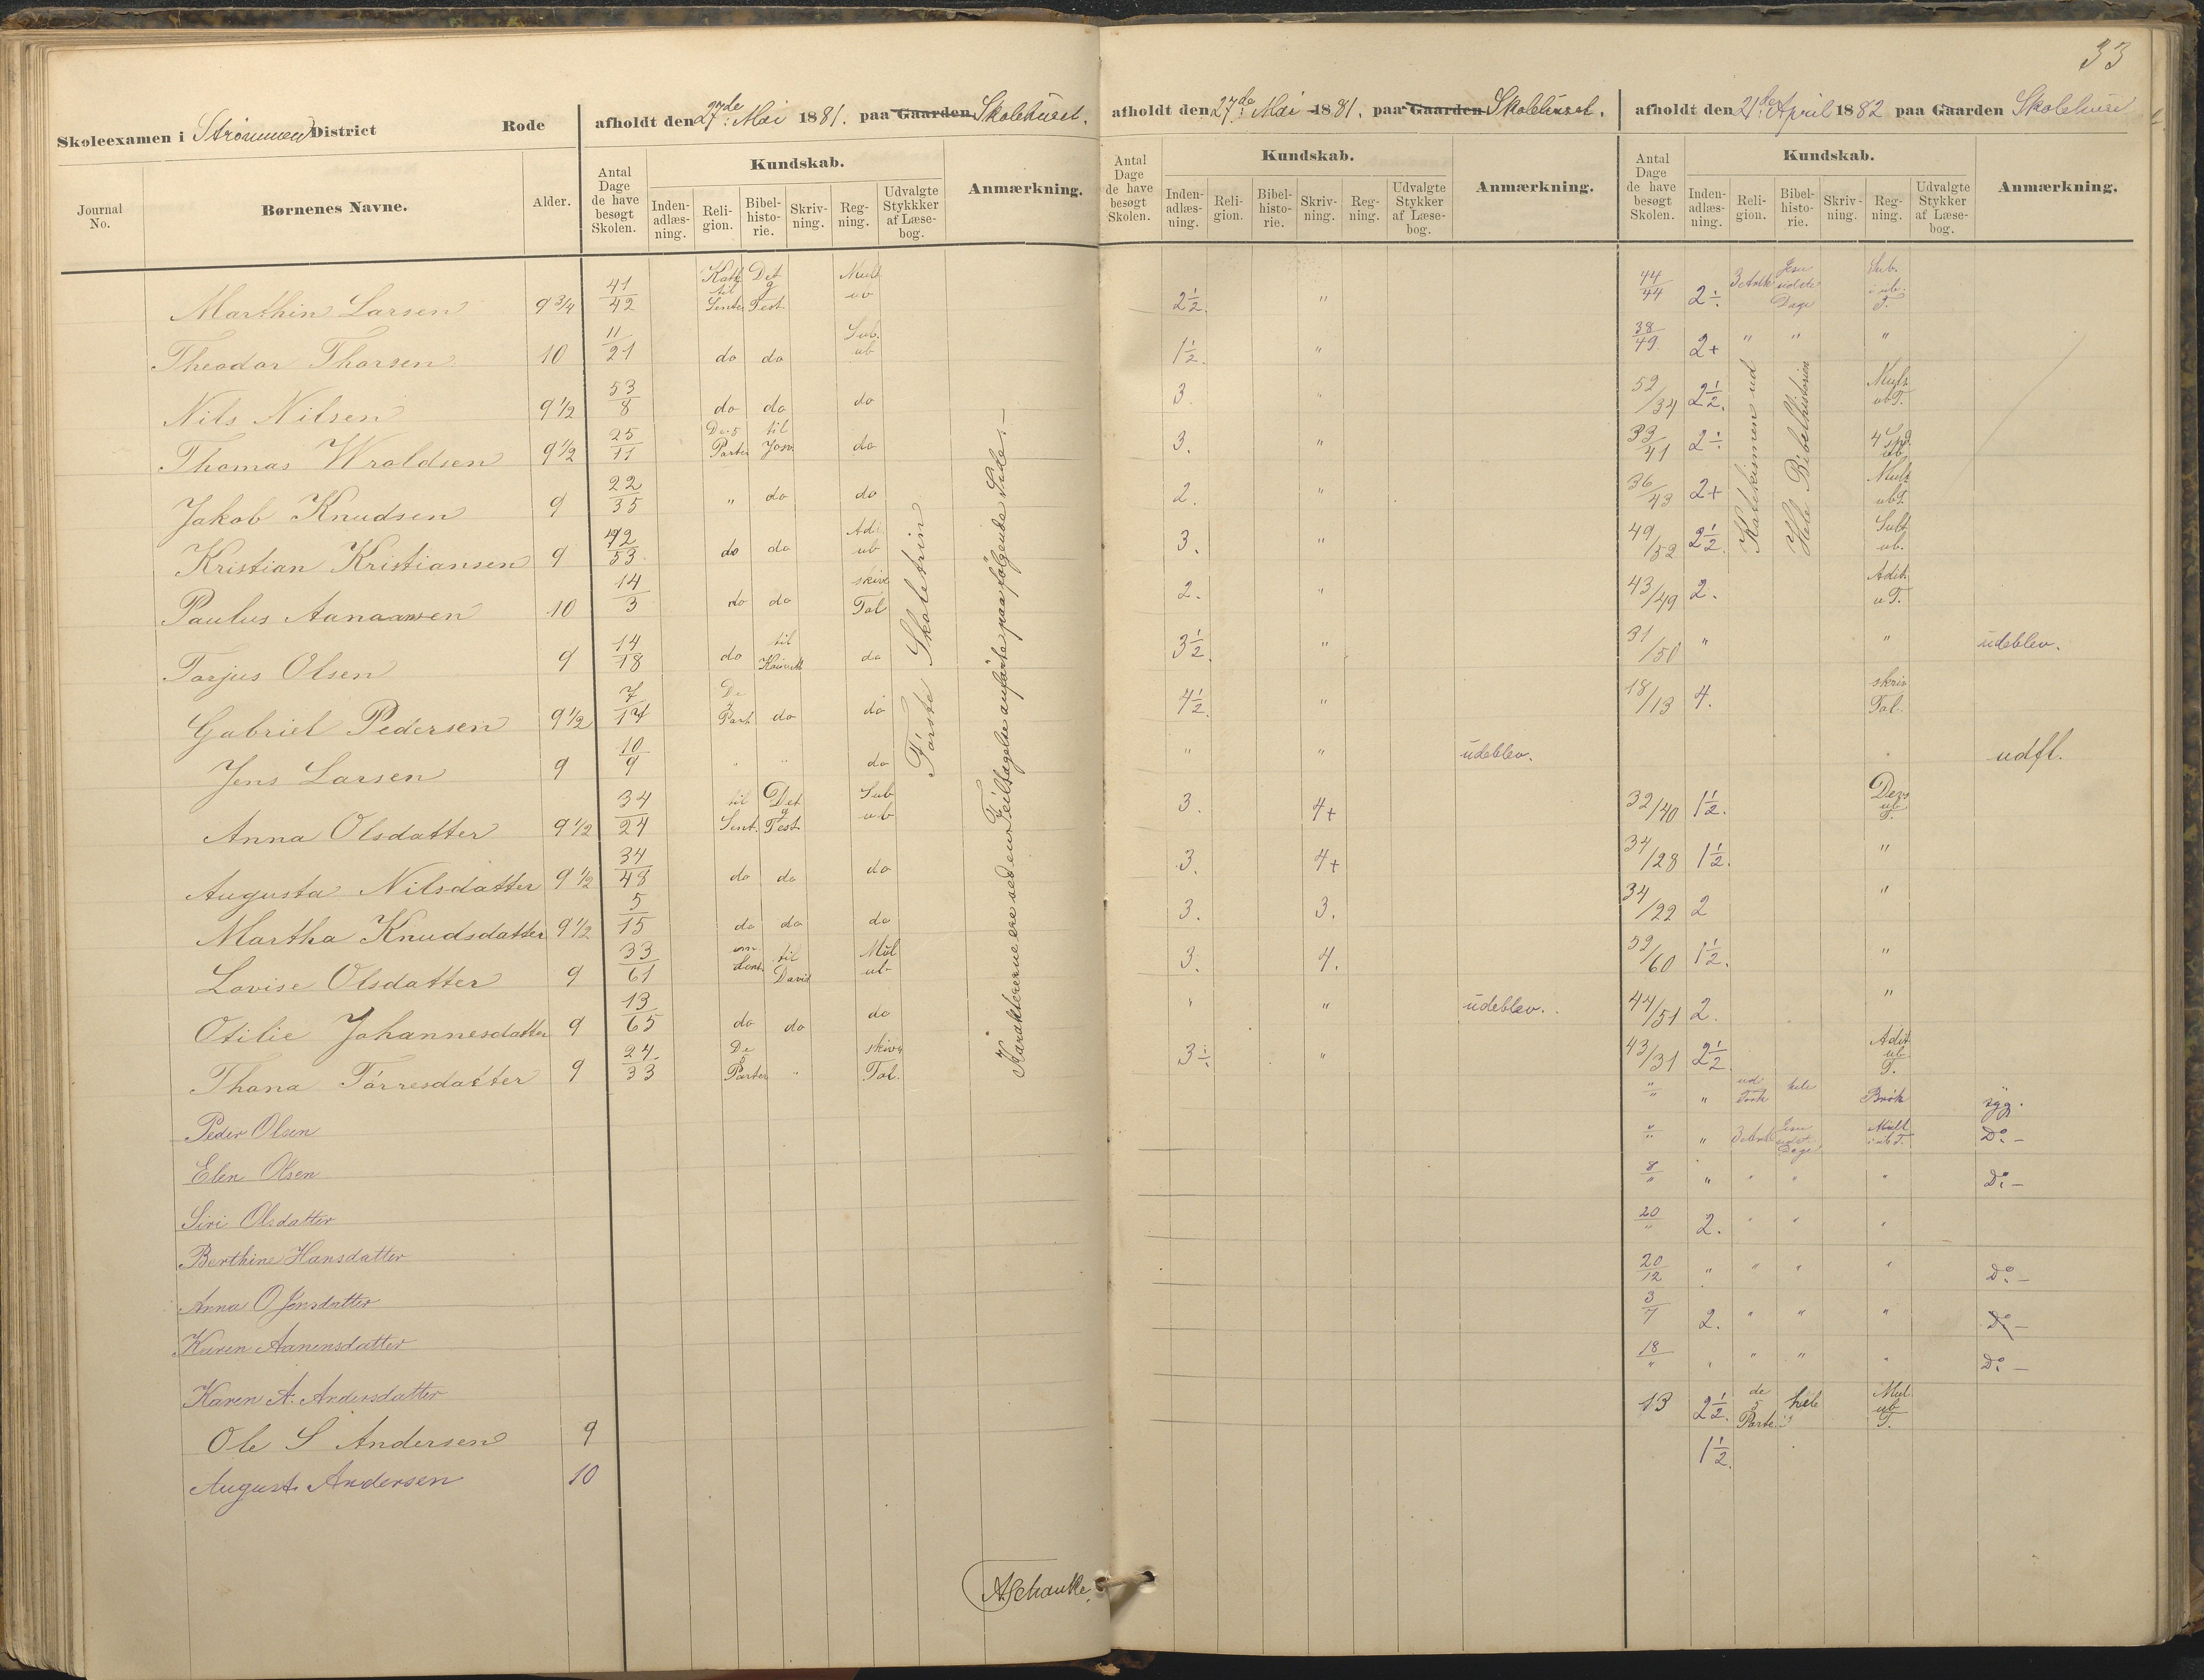 33
Skoleexamen i Strømmen District Rode
afholdt den 27de Mai 1881. paa Gaarden Skolehuset.
afholdt den 27de Mai 1881. paa Gaarden Skolehuset.
afholdt den 21de April 1882 paa Gaarden Skolehuset
Journal No. Børnenes Navne. Alder. Antal Dage de have besøgt Skolen. Kundskab. Indenadlæsning. Religion. Bibelhistorie. Skrivning. Regning. Udvalgte Stykkker af Læsebog. Anmærkning.
Antal Dage de have besøgt Skolen. Kundskab. Indenadlæsning. Religion. Bibelhistorie. Skrivning. Regning. Udvalgte Stykker af Læsebog. Anmærkning.
Antal Dage de have besøgt Skolen. Kundskab. Indenadlæsning. Religion. Bibelhistorie. Skrivning. Regning. Udvalgte Stykker af Læsebog. Anmærkning.
Marthin Larsen 9 3/4 41/42 Det g Test. Mult ub 2 1/2. " 44/44 2÷ Jesu sidste Dage Sub. i ub. T.
Theodor Thorsen 10 11/21 do do Sub. ub 1 1/2. " 38/49 2+ " " "
Nils Nilsen 9 1/2 53/8 do do do 3. " 52/34 2 1/2. Mult ubT.
Thomas Wroldsen 9 1/2 25/11 De 5 Parter til Josv. do 3. " 33/41 2÷ 4 Spd. ub.
Jakob Knudsen 9 22/35 " do do 2. " 36/43 2+ Mult ubT.
Kristian Kristiansen 9 42/53 do do Adi ub 3. " 49/52 2 1/2. Subt ub.
Paulus Aanaansen 10 14/3 do do skive Tal 2. " 43/49 2. Adit. u T.
Torjus Olsen 9 14/18 do til do 3 1/2. " 31/50 " " udeblev.
Gabriel Pedersen 9 1/2 7/14 De Part do do 4 1/2. " 18/13 4. skriv Tal.
Jens Larsen 9 10/9 " " do " " udeblev. udfl.
Anna Olsdatter 9 1/2 34/24 til Sent. Det g Test. Sub ub 3. 4+ 32/40 1 1/2. ub T.
Augusta Nilsdatter 9 1/2 34/48 do do do 3. 4+ 34/28 1 1/2. "
Martha Knudsdatter 9 1/2 5/15 do do do 3. 3. 34/22 2 "
Lovise Olsdatter 9 33/61 til David Mul ub 3. 4. 52/60 1 1/2. "
Otilie Johannesdatter 9 13/65 do do do " " udeblev. 44/51 2. "
Thona Tørresdatter 9 24/33 De Parter " skive Tal. 3÷ " 43/31 2 1/2 Adit ub T.
Peder Olsen " " hele Brøk syg.
Elen Olsen " " Jesu sidst. Dage Mult i ub T. Do. —
Siri Olsdatter 8/" " " " " Do. —
Berthine Hansdatter 20/" 2. " " "
Anna O Jensdatter 20/12 " " " " Do. —
Karen Aanensdatter 3/7 2. " " " Do —
Karen A. Andersdatter 18/" " " " " Do —
Ole S Andersen 9 13 2 1/2. de 5 Parte hele Mul ub T.
August Andersen 10 1 1/2.
Første Skoletrin
Karaktererne ere ved en Feiltagelse anførte paa følgende Side. —
Katekismen ud
Hele Bibelhistorien
A Schanke.